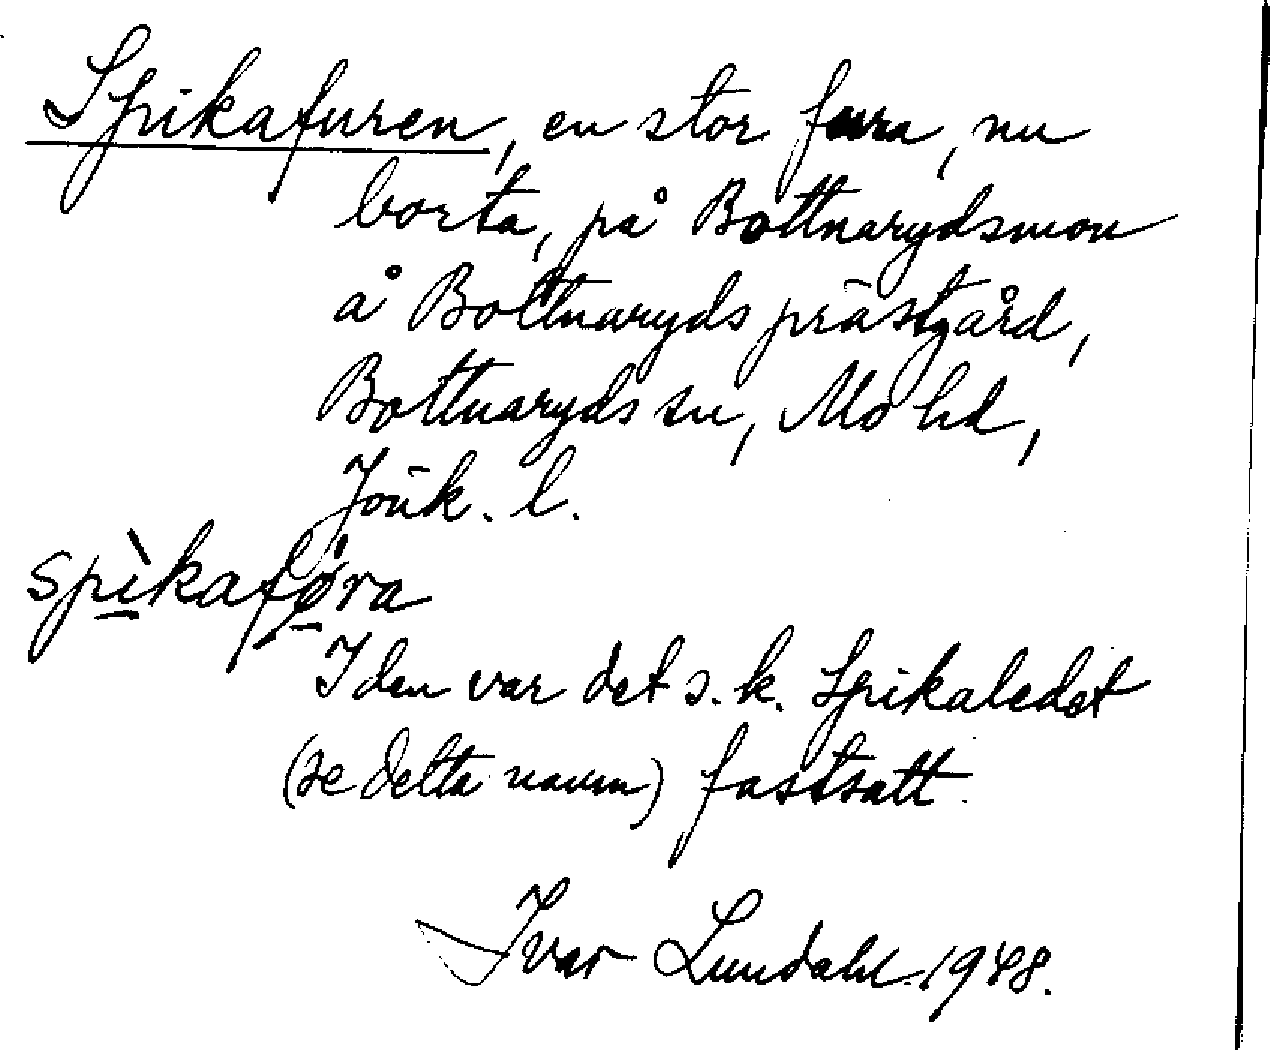 Spikafuren, en stor furra, nu
borta, på Bottnarydsmon
å Bottnaryds prästgård,
Bottnaryds sn, Mo hd,
Jönk. l.
spìkaføra
I den var det s.k. Spikaledet
(se detta namn) fastsatt.
Ivar Lundahl. 1948.